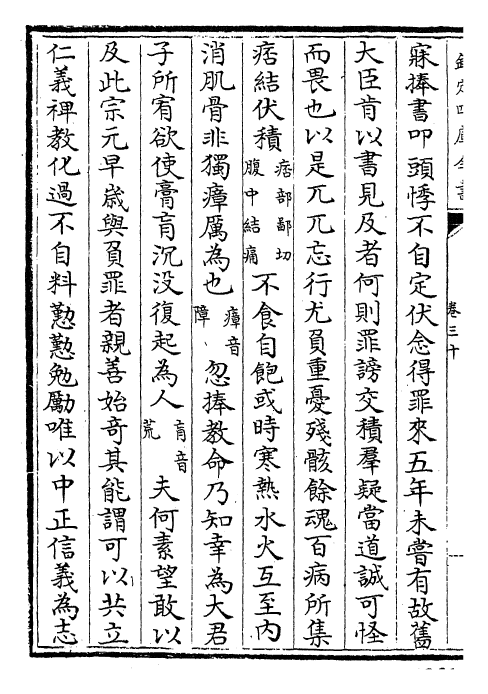 欽定四庫全書
卷三十
寐捧書叩頭悸不自定伏念得罪來五年未嘗有故舊
大臣肯以書見及者何則罪謗交積羣疑當道誠可怪
而畏也以是兀兀忘行尤負重憂殘骸餘魂百病所集
痞結伏積痞部鄙切腹中結痛不食自飽或時寒熱水火互至内
消肌骨非獨瘴厲為也瘴音障忽捧教命乃知幸為大君
子所宥欲使膏肓沉没復起為人肓音荒夫何素望敢以
及此宗元早歲與負罪者親善始奇其能謂可以共立
仁義禆教化過不自料懃懃勉勵唯以中正信義為志